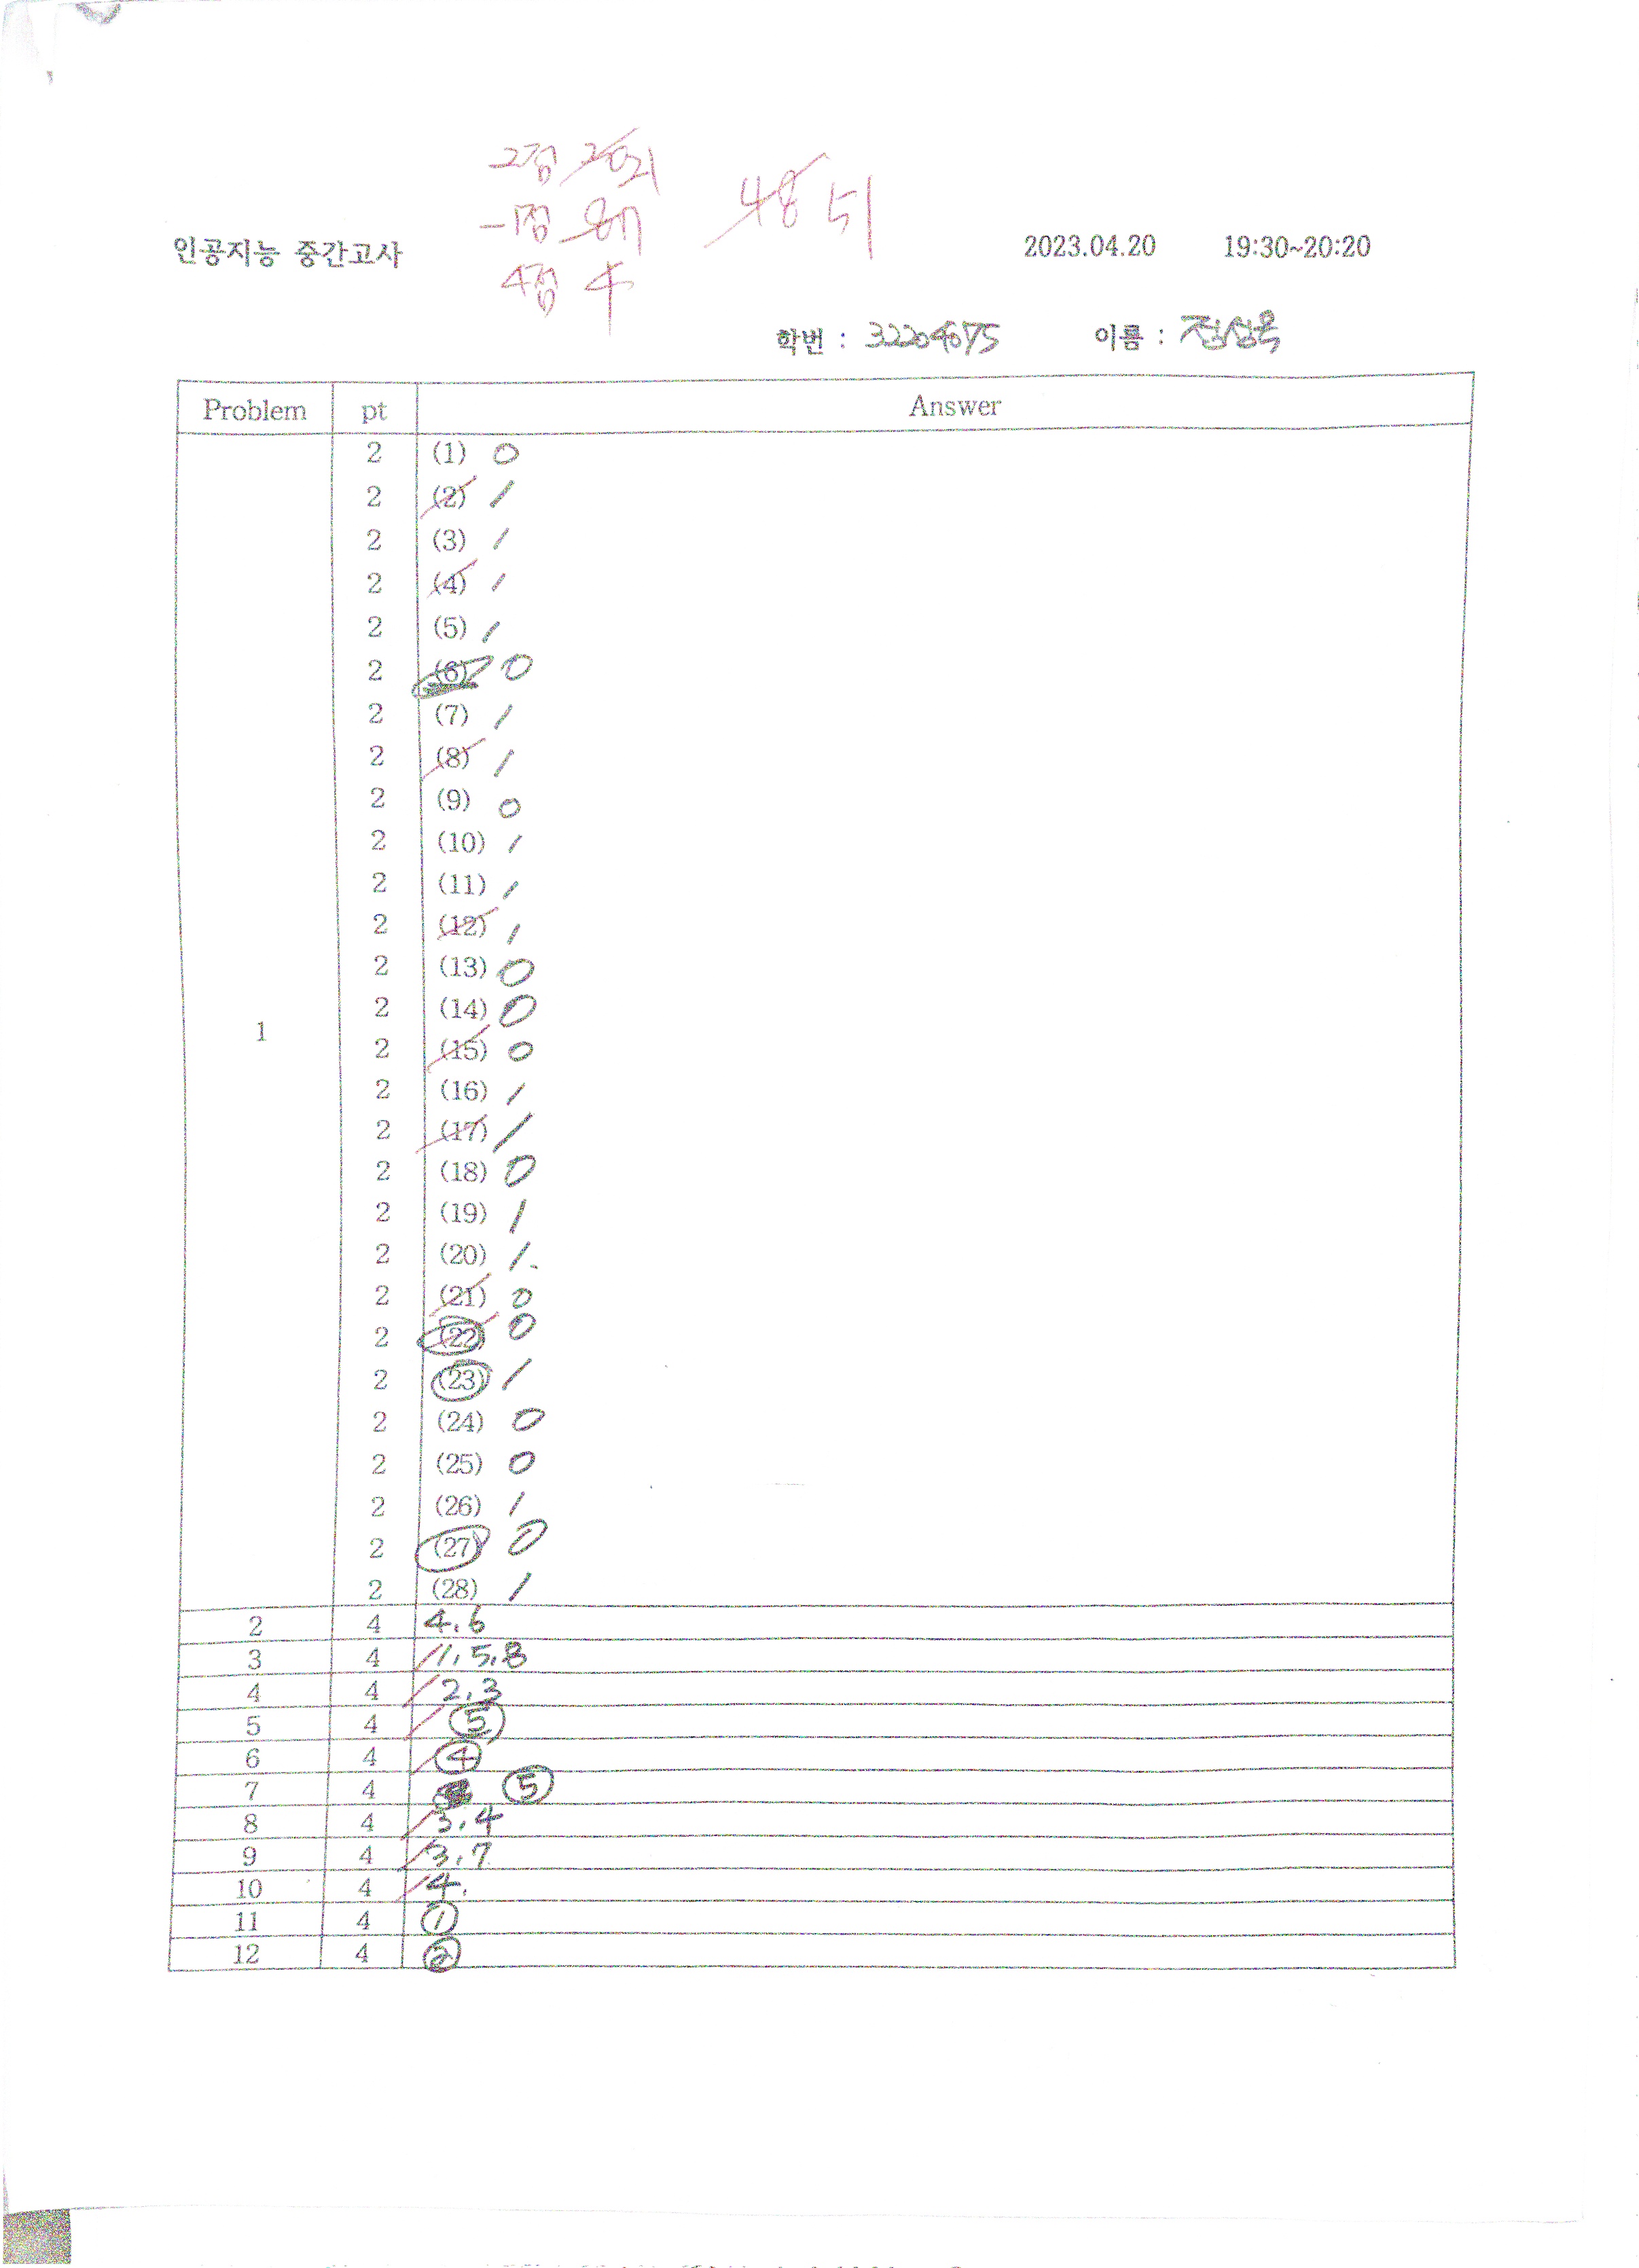 -2점 20 21
-1점 8 7
4점 4
48 51
인공지능 중간고사 2023.04.20 19:30~20:20
학번 : 32204675 이름 :
Problem pt Answer
1
2 (1) 0
2 (2) 1
2 (3) 1
2 (4) 1
2 (5) 1
2 (6) 0
2 (7) 1
2 (8) 1
2 (9) 0
2 (10) 1
2 (11) 1
2 (12) 1
2 (13) 0
2 (14) 0
2 (15) 0
2 (16) 1
2 (17) 1
2 (18) 0
2 (19) 1
2 (20) 1.
2 (21) 0
2 (22) 0
2 (23) 1
2 (24) 0
2 (25) 0
2 (26) 1
2 (27) 0
2 (28) 1
2 4 4.6
3 4 1.5.8
4 4 2.3
5 4 ⑤
6 4 ④
7 4 ⑤
8 4 3.4
9 4 3.7
10 4 4.
11 4 ①
12 4 ②